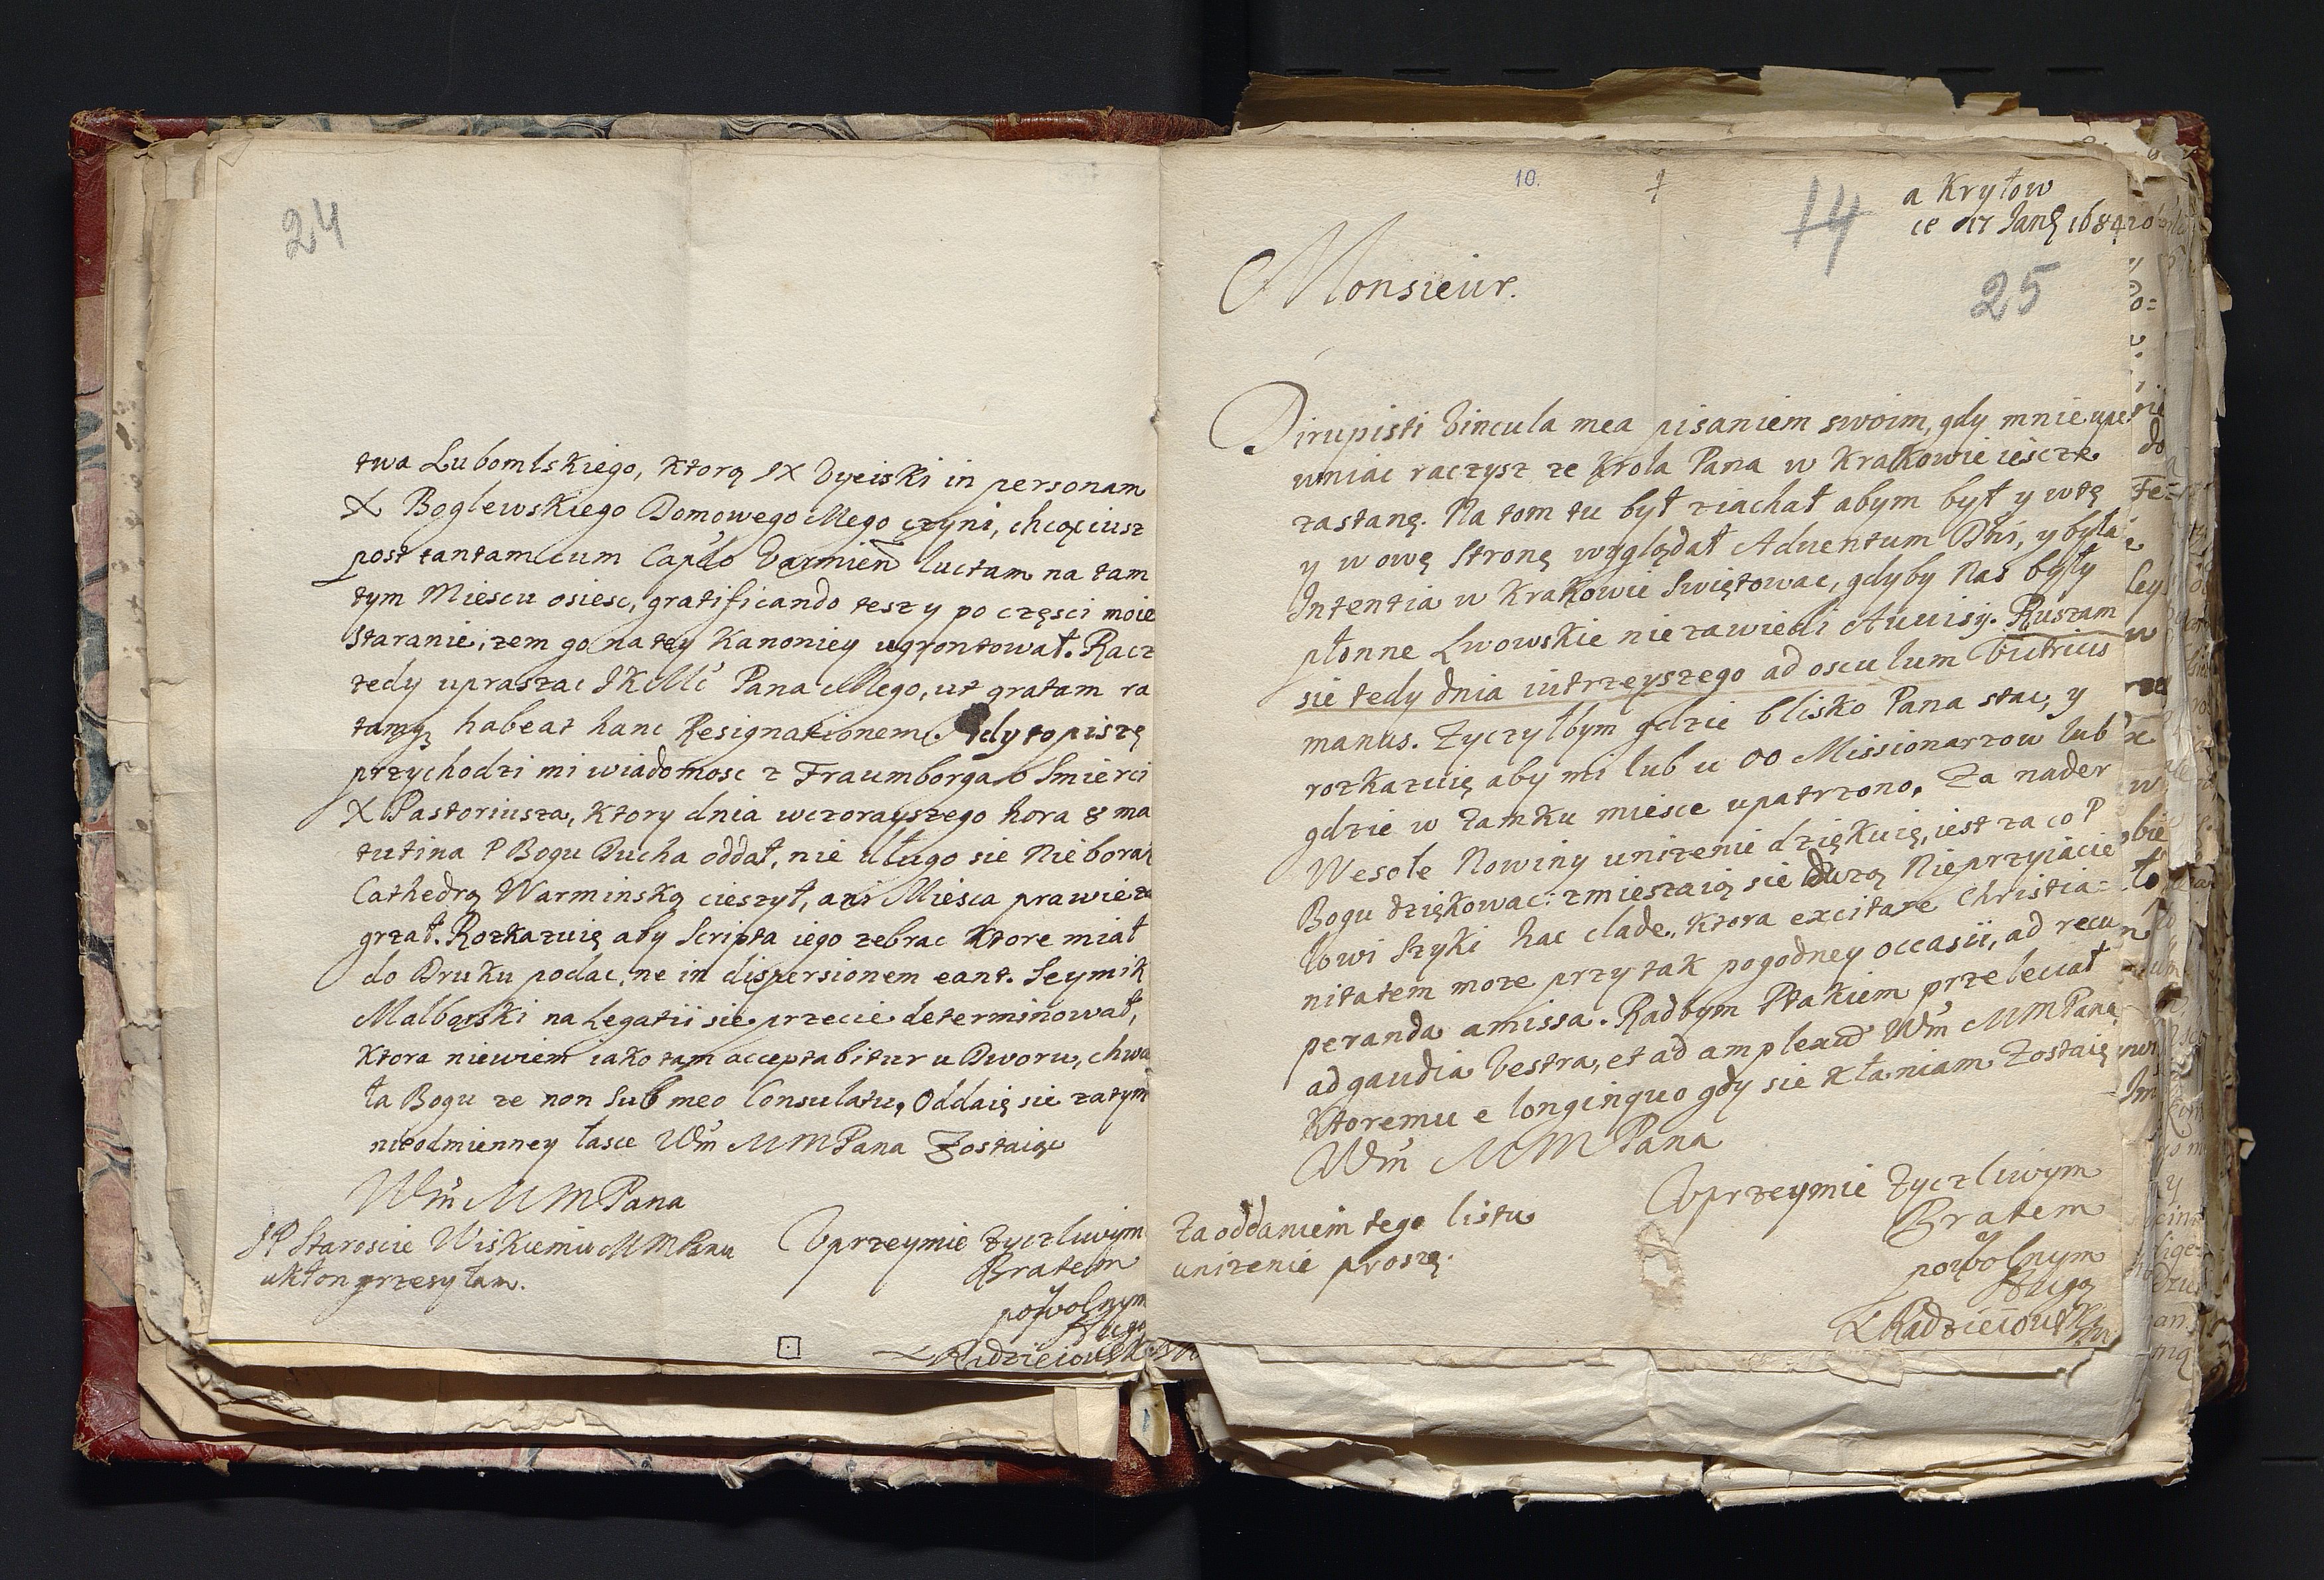 24
twa Lubomlskiego, ktorą JX Dyciski in personam
X Boglewskiego Domowego Mego czyni, chcąciusz
post tantam cum Caplo Varmien luctam na tam
tym Miescu osiesc, gratificando tesz y po częsci moie
staranie, zem go na tey Kanoniey ugrontował. Racz
tedy upraszac JKMć Pana Mego, ut gratam ra
tamqz habeat hanc Resignationem. Gdy to piszę
przychodzi mi wiadomosc z Fraumborga o Smierci
X Pastoriusza, ktory dnia wczorayszego hora 8 ma
tutina P Bogu Ducha oddał, nie długo sie Nieboraz
Cathedrą Warminską cieszył, ani Miesca prawie za
grzał. Rozkazuię aby Scripta iego zebrac ktore miał
do Druku podac, ne in dispersionem eant. Seymik
Malborski na Legatii sie przecie determinował,
ktora niewiem iako tam acceptabitur u Dworu, chwa
ła Bogu ze non Sub meo Consulatu, Oddaię sie zatym
nieodmienney łasce Wm MMPana Zostaiąc
Wm MMPana
JP Staroscie Wiskiemu MMPanu
ukłon przesyłam.
Uprzeymie Zyczliwym
Bratem
y
powolnym
Sługą
Radzieiowski
10.
14
a Kryłow
ce 17 Janv 1684
25
Monsieur.
Dirupisti Vincula mea pisaniem swoim, gdy mnie upe
wniac raczysz ze Krola Pana w Krakowie iescze
zastanę. Na tom tu był ziachał abym był y w tę
y w owę Stronę wyglądał Adventum Dni, y była
Intentia w Krakowie Swiętowac, gdyby Nas były
płonne Lwowskie nie zawiedli Auuisy. Ruszam
sie tedy dnia iutrzeyszego ad osculum Victricis
manus. Zyczyłbym gdzie blisko Pana stac, y
rozkazuię aby mi lub u OO Missionarzow lub
gdzie w Zamku miesce upatrzono. Za nader
Wesołe Nowiny unizenie dziękuię, iest za co P
Bogu dziękowac: zmieszaią sie duzą Nieprzyiacie
lowi Szyki hac clade, ktora excitare Christia=
nitatem moze przy tak pogodney occasii, ad recu
peranda amissa. Radbym Ptakiem przeleciał
ad gaudia Vestra, et ad amplexus Wm MMPana
Ktoremu e longinquo gdy sie kłaniam Zostaię
Wm MMPana
Za oddaniem tego listu
unizenie proszę.
Uprzeymie Zyczliwym
Bratem
y
powolnym
Sługą
Radzieiowski